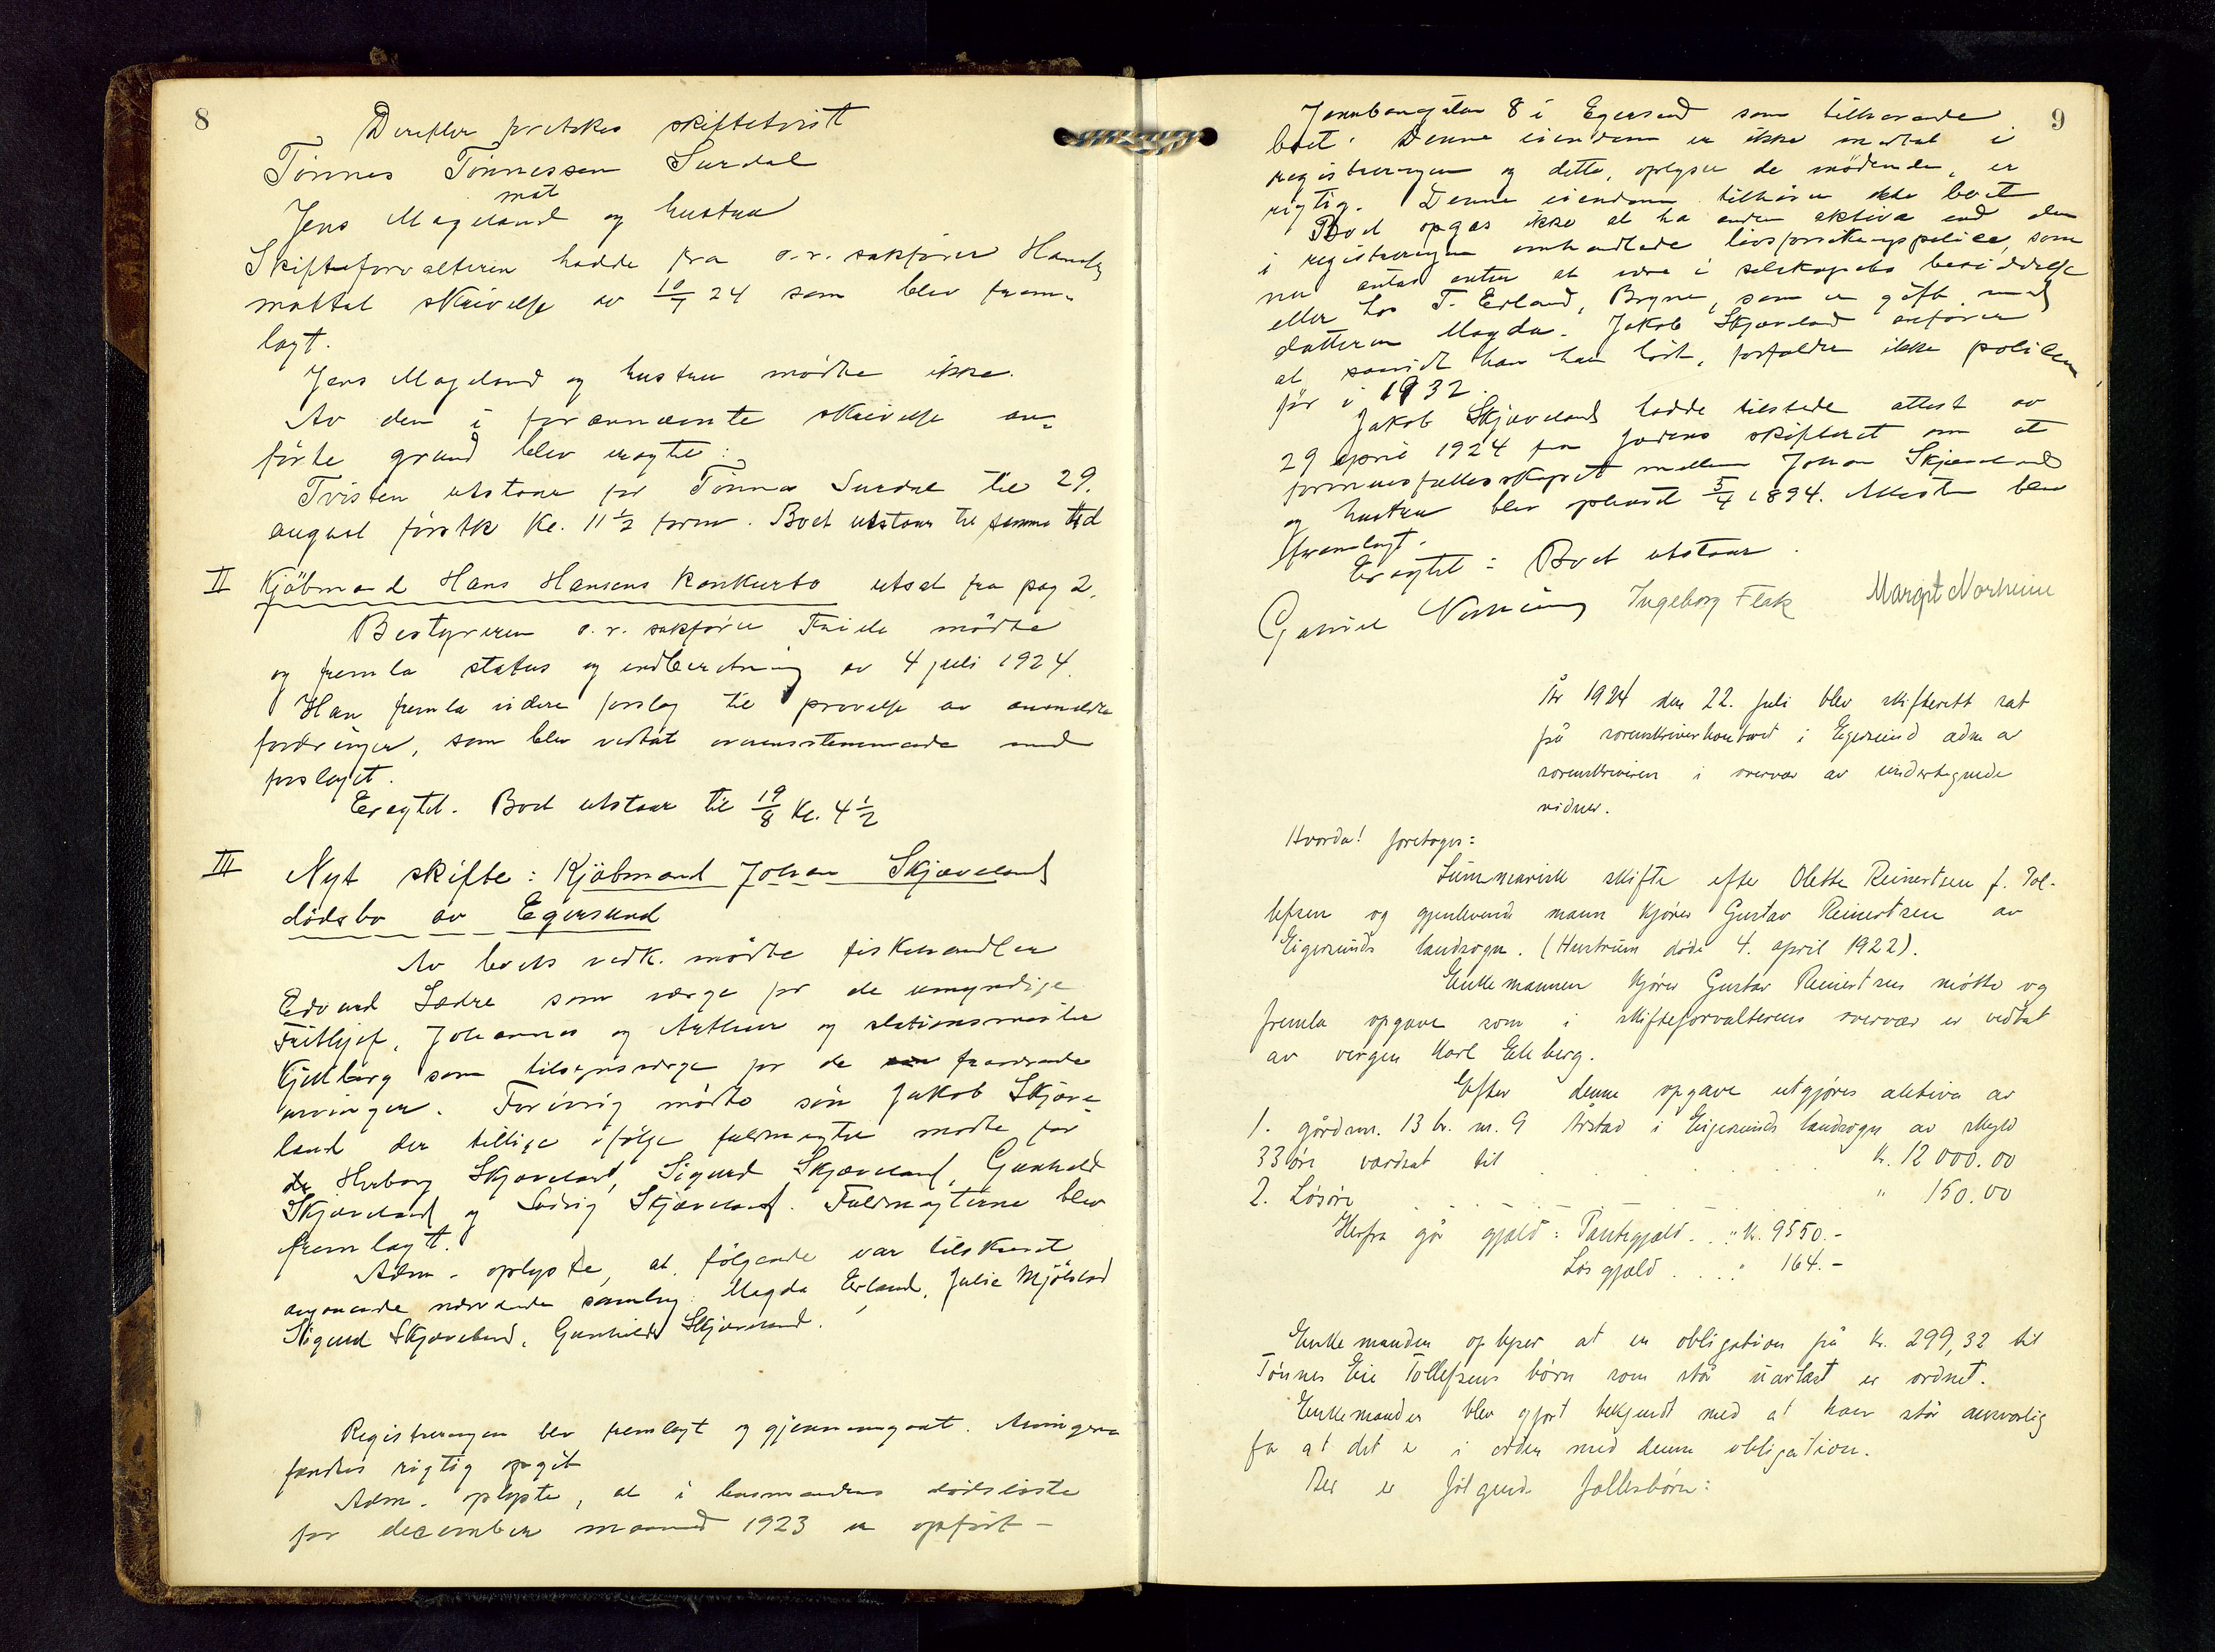 8
Derefter foretokes skiftetvist
Tönnes Tönnessen Surdal
mot
Jens Mageland og hustru
Skifteforvalteren hadde fra o.r. sakförer Handly
mottat skrivelse av 10/7 24 som blev frem-
lagt.
Jens Mageland og hustru mödte ikke.
Av den i forannævnte skrivelse an-
förte grund blev eragtet:
Tvisten utstaar for Tönnes Surdal til 29.
august förstk kl. 11 1/2 form. Boet utstaar til samme tid
II Kjöbmand Hans Hansens konkursbo utsat fra pag 2.
Bestyreren o.r. sakförer Feide mödte
og fremla status og indberetning av 4 juli 1924.
Han fremla videre forslag til prövelse av anmeldte
fordringer, som blev vedtat overensstemmende med
forslaget.
Eragtet. Boet utstaar til 19/8 kl. 4 1/2
III Nyt skifte: Kjöbmand Johan Skjævelands
dödsbo av Egersund
Av boets vedk. mödte fiskehandler
Edvard Sædre som værge for de umyndige
Frithjof, Johannes og Arthur og stationsmester
Kjellberg som tilsynsværge for de fraværende
arvinger. Forövrig mödte sön Jakob Skjæve-
land der tillige ifölge fuldmagter mödte for
de Herborg Skjæveland, Sigurd Skjæveland, Gunhild
Skjæveland og Solvig Skjæveland. Fuldmagterne blev
fremlagt.
Adm. oplyste, at følgende var tilskrevet
angaaende nærværende samling: Magda Erland, Julie Mjölstad
Sigurd Skjæveland, Gunhild Skjæveland.
Registreringen blev fremlagt og gjennemgaat. Arvingerne
fandtes rigtig opgit
Adm. oplyste, at i husmandens dödsliste
for december maaned 1923 er opfört -
9
Jernbanegaten 8 i Egersund som tilhørende
boet. Denne eiendom er ikke medtat i
registreringen og dette, oplyser de mödende, er
rigtig. Denne eiendom tilhörer ikke boet
Boet opgas ikke at ha anden aktiva end den
i registreringen omhandlede livsforsikringspolice, som
nu antas enten at være i selskapets besiddelse
eller hos T. Erland, Bryne, som er gift med
datteren Magda. Jakob Skjæveland anfører
at saavidt han har hört, forfalder ikke policen
för i 1932.
Jakob Skjæveland hadde tilstede attest av
29 april 1924 fra Jæderens skifteret om at
formuesfællesskapet mellem Johan Skjæveland
og hustru blev ophævet 5/4 1894. Attesten blev
fremlagt.
Eragtet: Boet utstaar.
Gabriel Ingeborg Flak Margit Norheim
År 1924 den 22. juli blev skifterett sat
på sorenskriverkontoret i Egersund adm av
sorenskriveren i overvær av undertegnede
vidner.
Hvorda! foretoges:
Summarisk skifte efter Olette Reinertsen f. Tol-
lefsen og gjenlevende mann kjører Gustav Reinertsen av
Eigersunds landsogn. (Hustruen døde 4. april 1922).
Enkemannen kjører Gustav Reinertsen møtte og
fremla opgave som i skifteforvalterens overvær er vedtat
av vergen Karl Ekeberg.
Efter denne opgave utgjøres aktiva av
1. gårdsnr. 13 br. nr. 9 Årstad i Eigersunds landsogn av skyld
33 øre vardsat til . . . . kr. 12 000.00
2. Løsøre . . . . " 150.00
Herfra går gjæld: Pantegjæld . . " kr. 9550.-
Løs gjæld . . . . " 164.-
Enkemanden oplyser at en obligation på kr. 299,32 til
Tønnes Eie Tollefsens børn som står uavløst er ordnet.
Enkemanden blev gjort bekjendt med at han står ansvarlig
for at det er i orden med denne obligation.
Der er følgende fællesbørn: